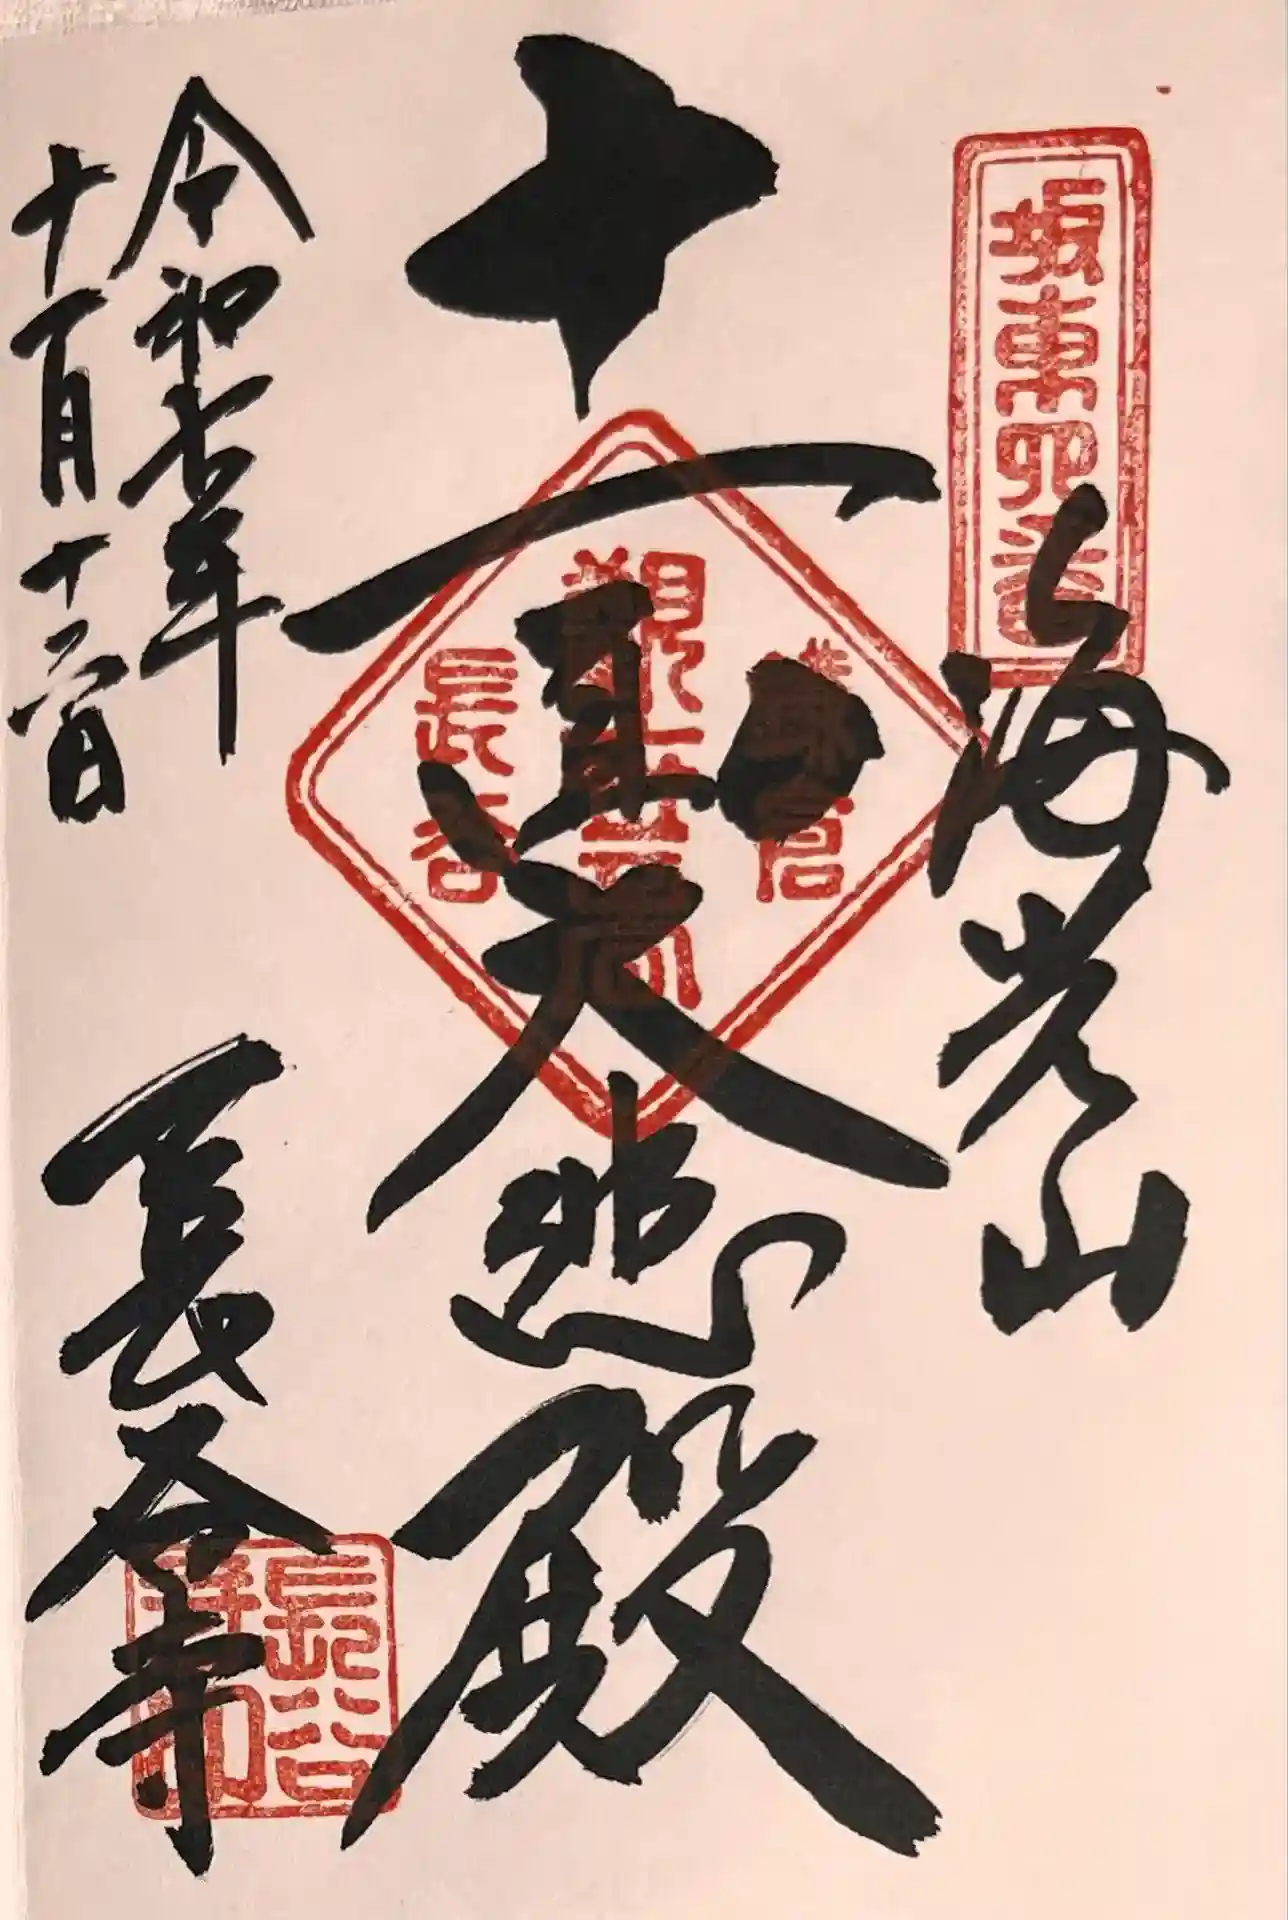 坂東四番
海光山
十一面大悲殿
鎌倉
長谷
令和七年
十一月十二日
長谷寺
長谷
寺印